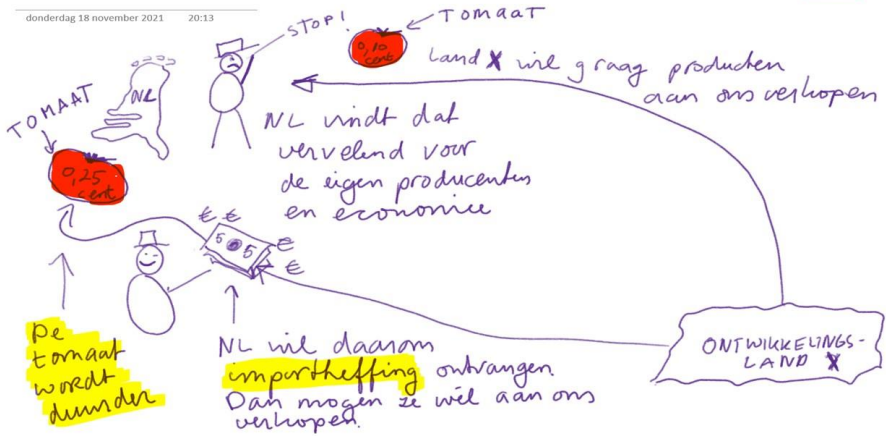 donderdag 18 november 2021 20:13
STOP!
TOMAAT
0,10
cent
Land X wil graag producten
aan ons verkopen
NL
TOMAAT
0,25
cent
NL vindt dat
vervelend voor
de eigen producenten
en economie
€ €
5 5
€
€
De
tomaat
wordt
duurder
NL wil daarom
importheffing ontvangen.
Dan mogen ze wél aan ons
verkopen.
ONTWIKKELINGS-
LAND X